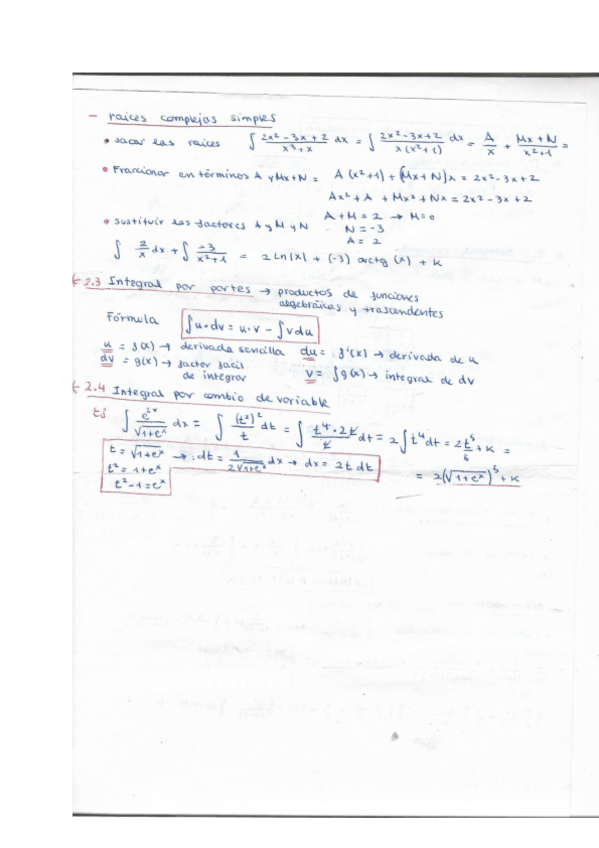 - raices complejas simples
• sacar las raices ∫ 2x² - 3x + 2 / x³ + x dx = ∫ 2x² - 3x + 2 / x(x² + 1) dx = A / x + Mx + N / x² + 1 =
• Fraccionar en términos A y Mx+N = A(x²+1) + (Mx+N)x = 2x² - 3x + 2
Ax² + A + Mx² + Nx = 2x² - 3x + 2
A + M = 2 → M = 0
• sustituir los factores A y M y N N = -3
A = 2
∫ 2/x dx + ∫ -3 / x² + 1 = 2 Ln|x| + (-3) arctg (x) + K
2.3 Integral por partes → productos de funciones
algebráicas y trascendentes
Fórmula ∫u·dv = u·v - ∫vdu
u = f(x) → derivada sencilla du = f'(x) → derivada de u
dv = g(x) → factor facil v = ∫g(x) → integral de dv
de integrar
2.4 Integral por cambio de variable
Ej ∫ e²ˣ / √1+eˣ dx = ∫ (t²)² / t dt = ∫ t⁴ · 2t / t dt = 2∫t⁴dt = 2 t⁵/5 + K =
t = √1+eˣ → dt = 1 / 2√1+eˣ dx → dx = 2t dt = 2(√1+eˣ)⁵ + K
t² = 1+eˣ
t² - 1 = eˣ